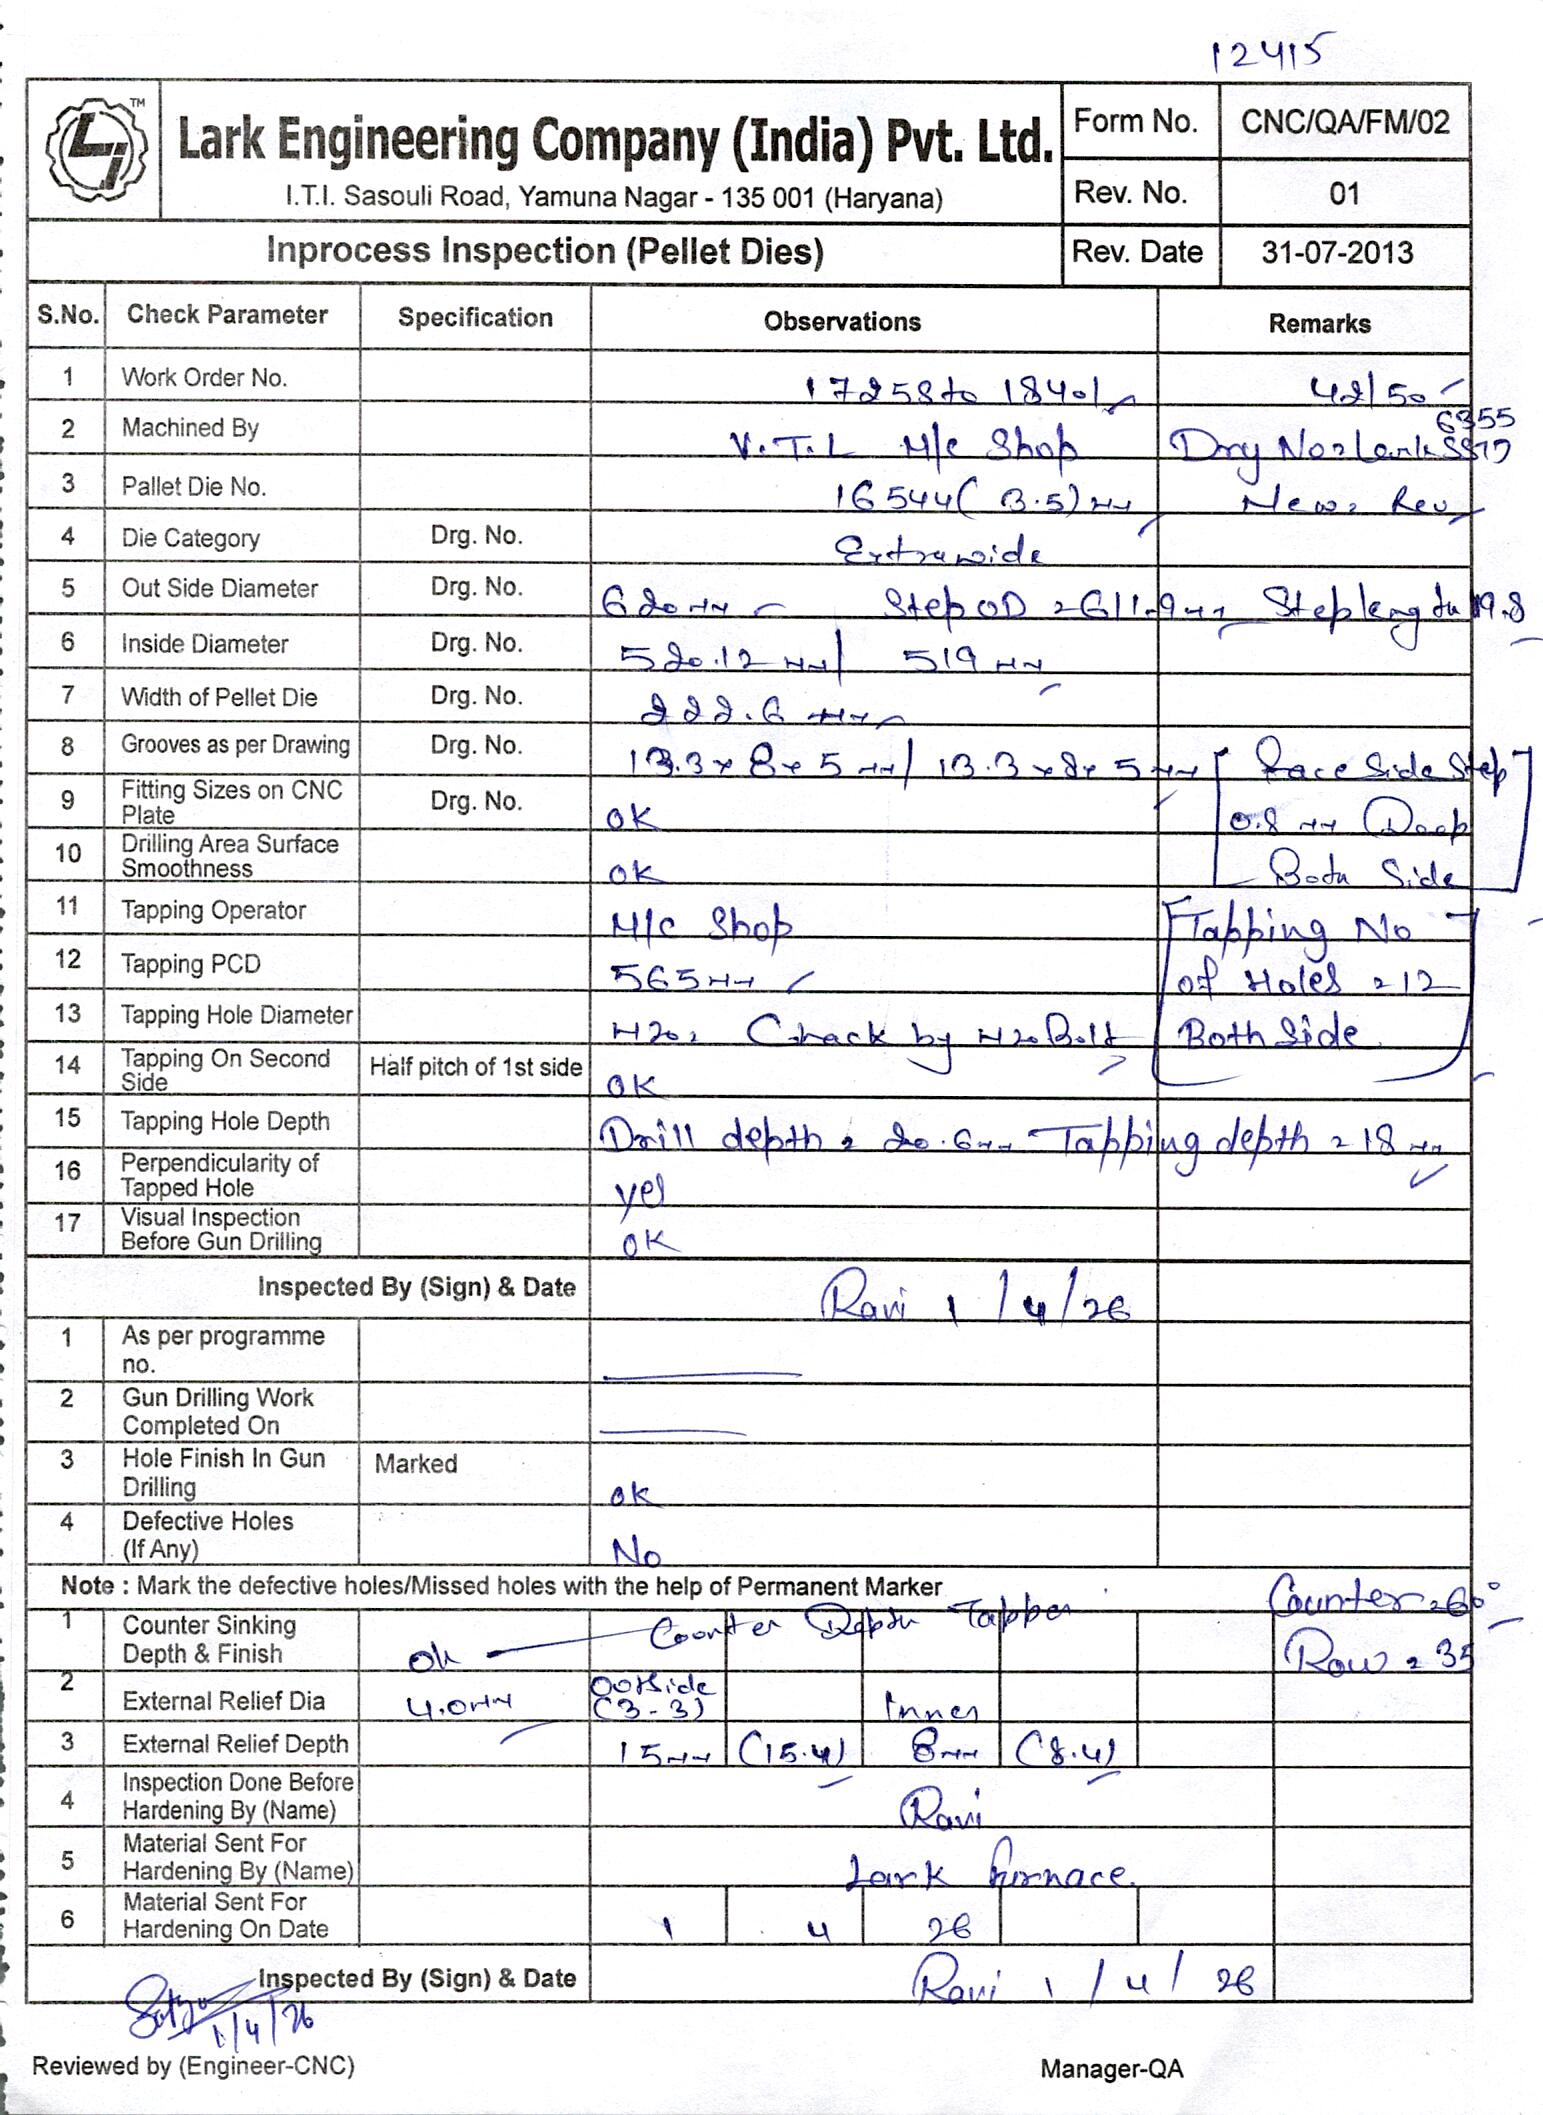 12415
TM
Lark Engineering Company (India) Pvt. Ltd.
I.T.I. Sasouli Road, Yamuna Nagar - 135 001 (Haryana)
Form No. CNC/QA/FM/02
Rev. No. 01
Inprocess Inspection (Pellet Dies) Rev. Date 31-07-2013
S.No. Check Parameter Specification Observations Remarks
1 Work Order No. 17258 to 18401 42/50
2 Machined By V.T.L M/c Shop Drg No = Lark 6355
3 Pallet Die No. 16544 (3.5) mm New = Rev
4 Die Category Drg. No. Extrawide
5 Out Side Diameter Drg. No. 620 mm Step OD = 611.9 mm Step length 19.8
6 Inside Diameter Drg. No. 520.12 mm / 519 mm
7 Width of Pellet Die Drg. No. 222.6 mm
8 Grooves as per Drawing Drg. No. 13.3 x 8 x 5 mm / 13.3 x 8 x 5 mm [Face Side Step
9 Fitting Sizes on CNC Plate Drg. No. OK 0.8 mm Deep
10 Drilling Area Surface Smoothness OK Both Side]
11 Tapping Operator M/C Shop [Tapping No
12 Tapping PCD 565 mm of Holes = 12
13 Tapping Hole Diameter M20 = Chack by M20 Bolt Both Side]
14 Tapping On Second Side Half pitch of 1st side OK
15 Tapping Hole Depth Drill depth = 20.6 mm Tapping depth = 18 mm
16 Perpendicularity of Tapped Hole yes
17 Visual Inspection Before Gun Drilling OK
Inspected By (Sign) & Date Ravi 1/4/26
1 As per programme no.
2 Gun Drilling Work Completed On
3 Hole Finish In Gun Drilling Marked OK
4 Defective Holes (If Any) No
Note : Mark the defective holes/Missed holes with the help of Permanent Marker
Counter = 60°
1 Counter Sinking Depth & Finish Ok Counter Depth Tapper Row = 35
2 External Relief Dia 4.0 mm Outside (3-3) Inner
3 External Relief Depth 15 mm (15.4) 8 mm (8.4)
4 Inspection Done Before Hardening By (Name) Ravi
5 Material Sent For Hardening By (Name) Lark furnace.
6 Material Sent For Hardening On Date 1 4 26
Inspected By (Sign) & Date Ravi 1/4/26
1/4/26
Reviewed by (Engineer-CNC) Manager-QA